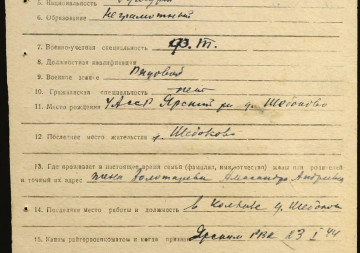 5. Национальность
6. Образование Неграмотный
7. Военно-учетная специальность
8. Должностная квалификация
9. Военное звание Рядовой
10. Гражданская специальность нет
11. Место рождения УАССР Ярский р-н д.
12. Последнее место жительства д.
13. Где проживает в настоящее время семья (фамилия, имя, отчество) жены или родителей
и точный их адрес жена Александра Андреевна
14. Последнее место работы и должность в колхозе д.
15. Каким райгорвоенкоматом и когда призван Ярским РВК 13 I 44